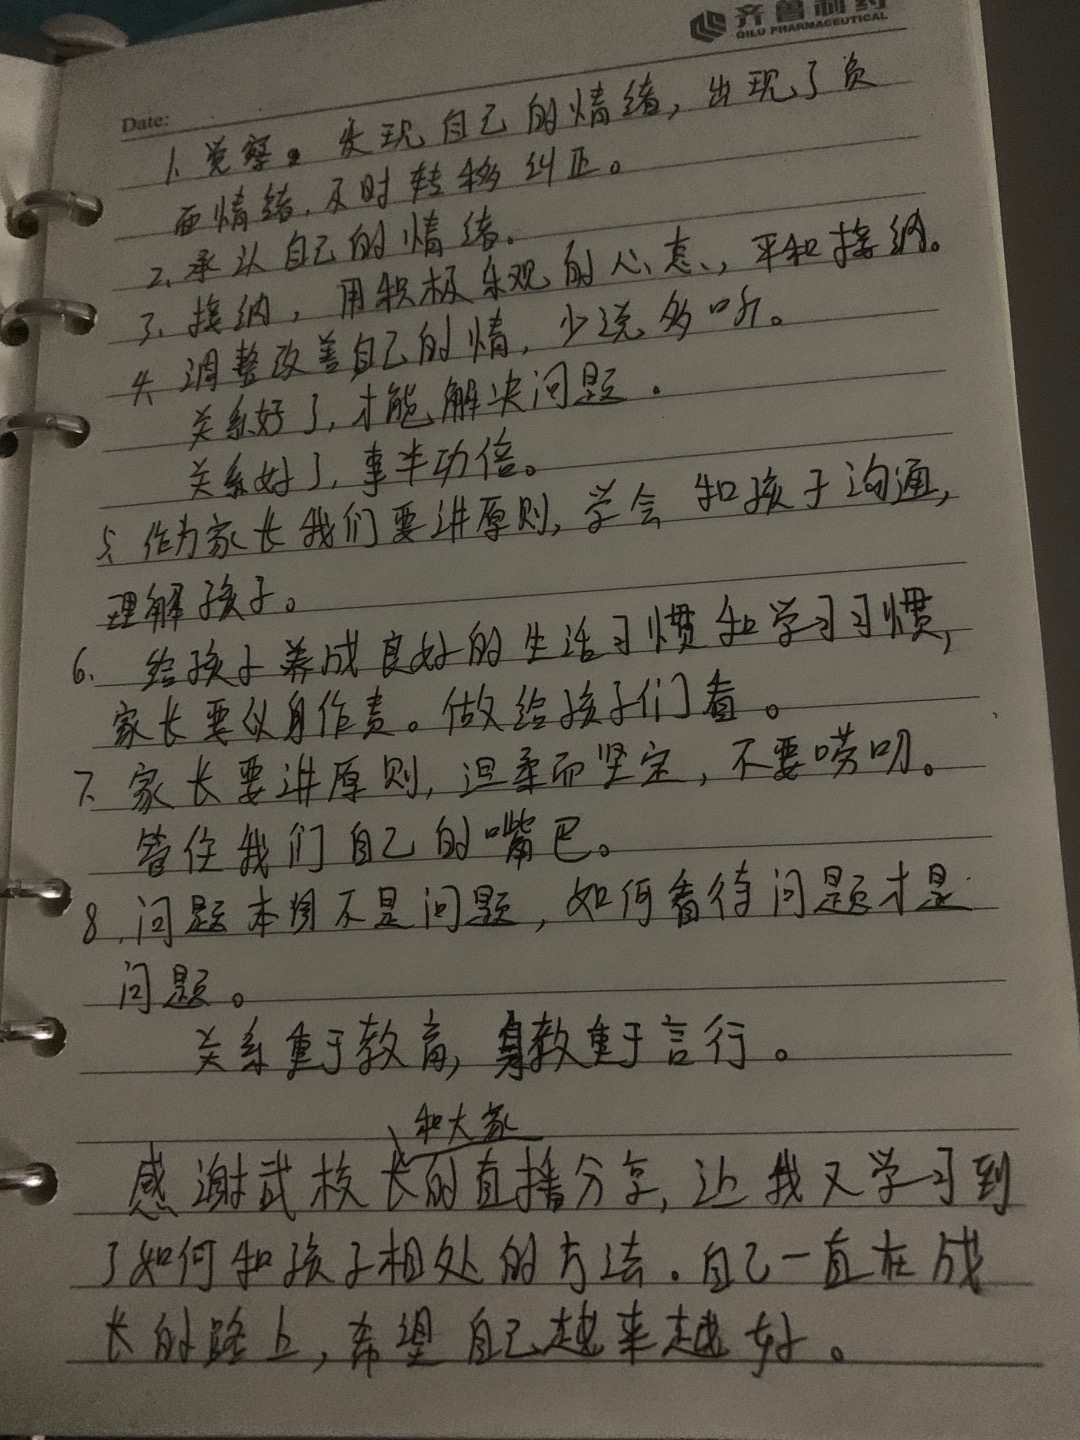 齐鲁制药
QILU PHARMACEUTICAL
Date:
1、觉察。发现自己的情绪，出现了负
面情绪，及时转移纠正。
2、承认自己的情绪。
3、接纳，用积极乐观的心态，平和接纳。
4、调整改善自己的情，少说多听。
关系好了，才能解决问题。
关系好了，事半功倍。
5、作为家长我们要讲原则，学会和孩子沟通，
理解孩子。
6、给孩子养成良好的生活习惯和学习习惯，
家长要以身作责。做给孩子们看。
7、家长要讲原则，温柔而坚定，不要唠叨。
管住我们自己的嘴巴。
8、问题本身不是问题，如何看待问题才是
问题。
关系重于教育，身教重于言行。
和大家
感谢武校长的直播分享，让我又学习到
了如何和孩子相处的方法。自己一直在成
长的路上，希望自己越来越好。